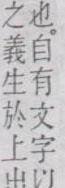 也。自有文字以
之義生於上出